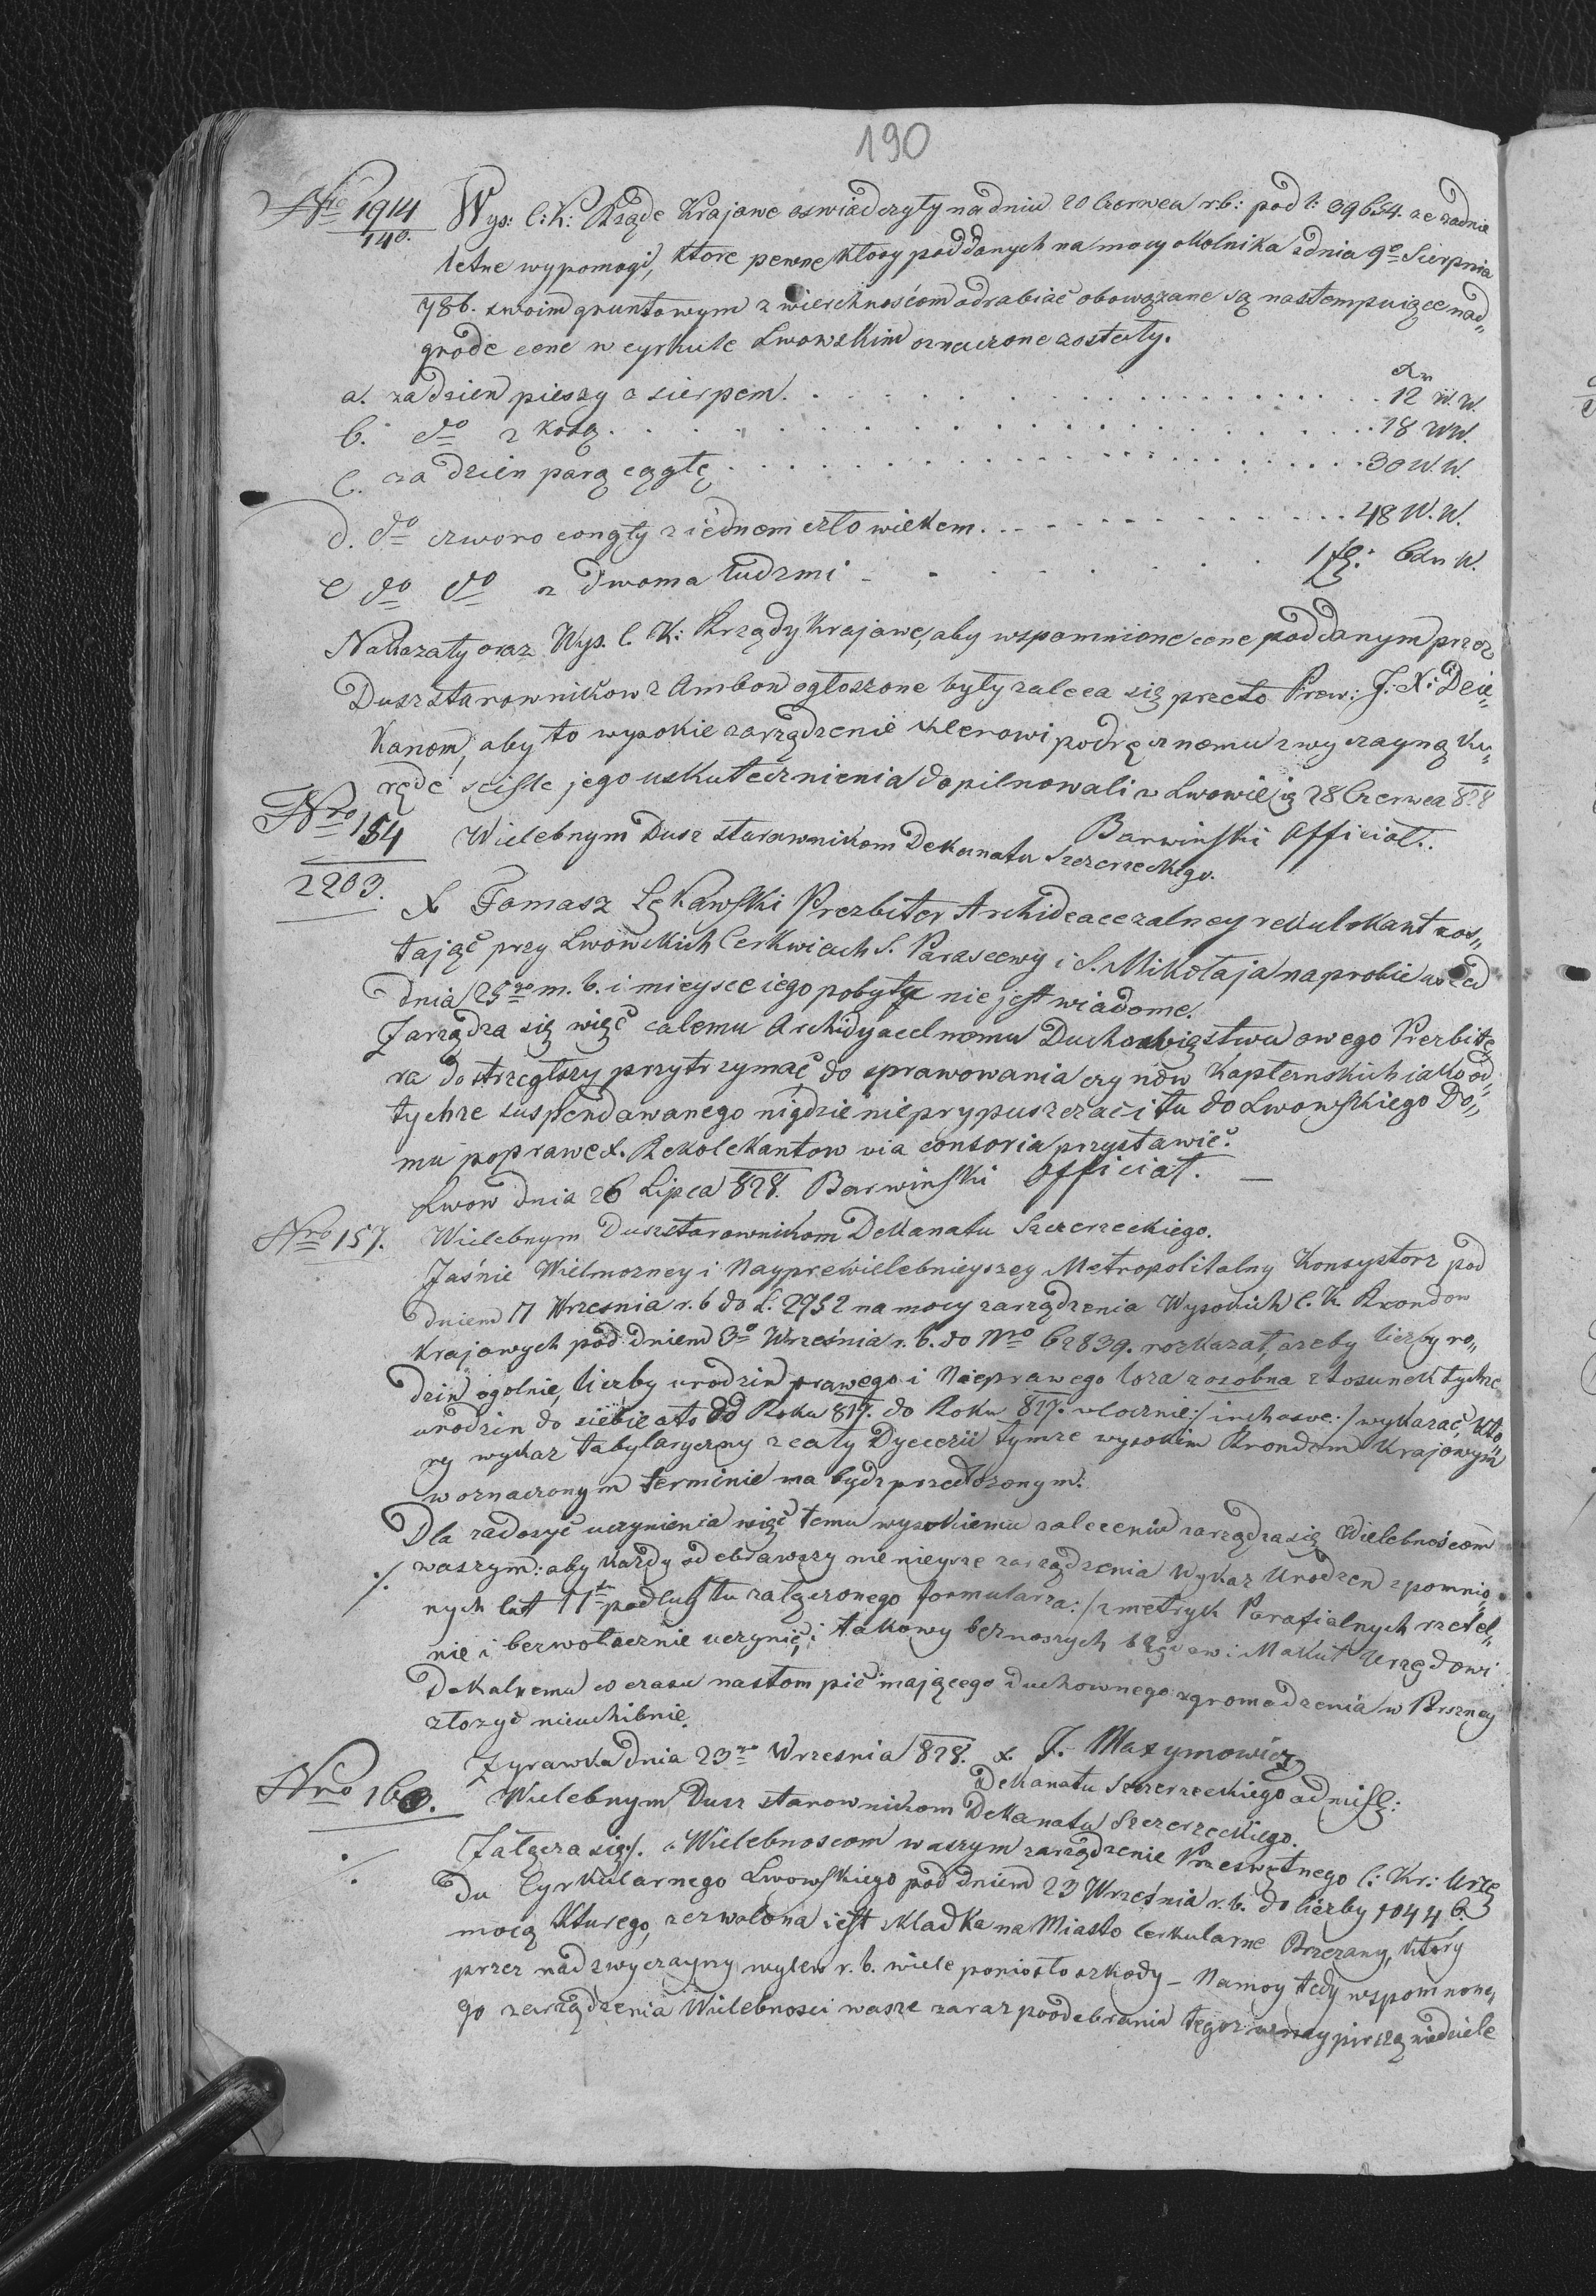 190
Nro 1914
140.
Wys: C: K: Rządc Krajowe oswiadczyły na dniu 20 Czerwca r.b: pod l: 39654. ze zadnie
letne wypomogi, ktore pewne klosy poddanych na mocy okolnika zdnia 9o Sierpnia
786. swoim gruntowym zwierchnośćom odrabiać obowązane są nastempuiące nad„
grode cene w cyrkule Lwowskim oznaczone zostały.
a. za dzien pieszy z sierpem. . . . . 12 W. W.
b. do z kosą . . . . . 18 WW.
c. za dzien parą cągłę . . . . . 30 W. W.
d. do czworo congły z iednem człowiekem . . . . . 48 W. W.
e do do z dwoma ludzmi . . . . . 1 f:
Nakazały oraz Wys. C. K: Rządy Krajowe, aby wspomnione cene poddanym przez
Duszstarownikow z Ambon ogłoszone były zaleca się przeto Prew: J. X: Dzie„
kanom, aby to wysokie zarządzenie klerowi podręcznemu zwyczayną ku„
rędę sciśle jego uskutecznienia dopilnowali w Lwowie 28 Czerwca 828
Barwiński Official.
Nro 154
2203.
Wielebnym Dusz starawnikom Dekanatu Szczerzeckiego.
X Tomasz Lękawski Prezbiter Archideacezalney rekulekant zos„
tając przy Lwowskich Cerkwiach S. Parascewy i S. Mikołaja na probie uszed
dnia 25go m. b. i mieysce iego pobyty nie jest wiadome.
Zarządza się więc calemu Archidyacelnomu Duchowięstwu owego Prezbite
ra dostrzegłszy przytrzymać, do sprawowania czynow kapłanskich iako od„
tychze suspendawanego nigdzie nieprypuszczać i tu do Lwowskiego Do„
mu poprawe X. Rekolekantow via consoria przystawić.
Lwow dnia 26 Lipca 828. Barwiński Official. —
Nro 157.
Wielebnym Duszstarownikom Dekanatu Szczerzeckiego.
Jaśnie Wielmozney i Nayprewielebnieyszey Metropolitalny Konsystorz pod
dniem 11 Wrzesnia r. b do L. 2952 na mocy zarządzenia Wysokich C. K. Rrondow
Krajowych pod dniem 3o Września r. b. do Nro 62839. rozkazał, azeby liczby ro„
dzin ogolnie, liczby urodzin prawego i Nieprawego loza zosobna z stosunek tychze
urodzin do siebie ato od Roku 817. do Roku 827. włocznie :/ inchosive :/ wykazać, kto„
ry wykaz tabylaryczny z cały Dyecezii tymze wysokim Rrondom Krajowym
w oznaczonym terminie ma bydz przedłozonym.
Dla zadosyć uczynienia więc temu wysokiemu zaleceniu zarządza się Wielebnośćom
./. waszym: aby kazdy odebrawszy nienieysze zarządzenia Wykaz Urodzen spomnio„
nych lat 11tu podlug tu załączonego formularza :/ z metryk Parafialnych rzetel„
nie i bezwołocznie uczynić, i takowy beznoszych błędow i Makuł Urzędowi
Dekalnemu w czasu nastompić mającego duchownego zgromadzenia w Porszney
złozyć nieuchibnie.
Zyrawka dnia 23go Wrzesnia 828. x. J. Maxymowicz
Dekanatu Szczerzeckiego admist:
Nro 160.
Wielebnym Dusz starownikom Dekanatu Szczerzeckiego.
./.
Załącza się ./. Wielebnoscom waszym zarządzenie Przeswętnego C: Kr: Urzę
du Cyrkularnego Lwowskiego pod dniem 23 Września r. b. do liczby 10446.
mocą kturego, zezwolona iest składka na Miasto Cerkularne Brzezany, ktory
przez nadzwyczayny wylew r. b. wiele poniosło szkody — Namoy tedy wspomnone„
go zarządzenia Wielebnosci wasze zaraz poodebrania tegoz wnaypirszą niedziele